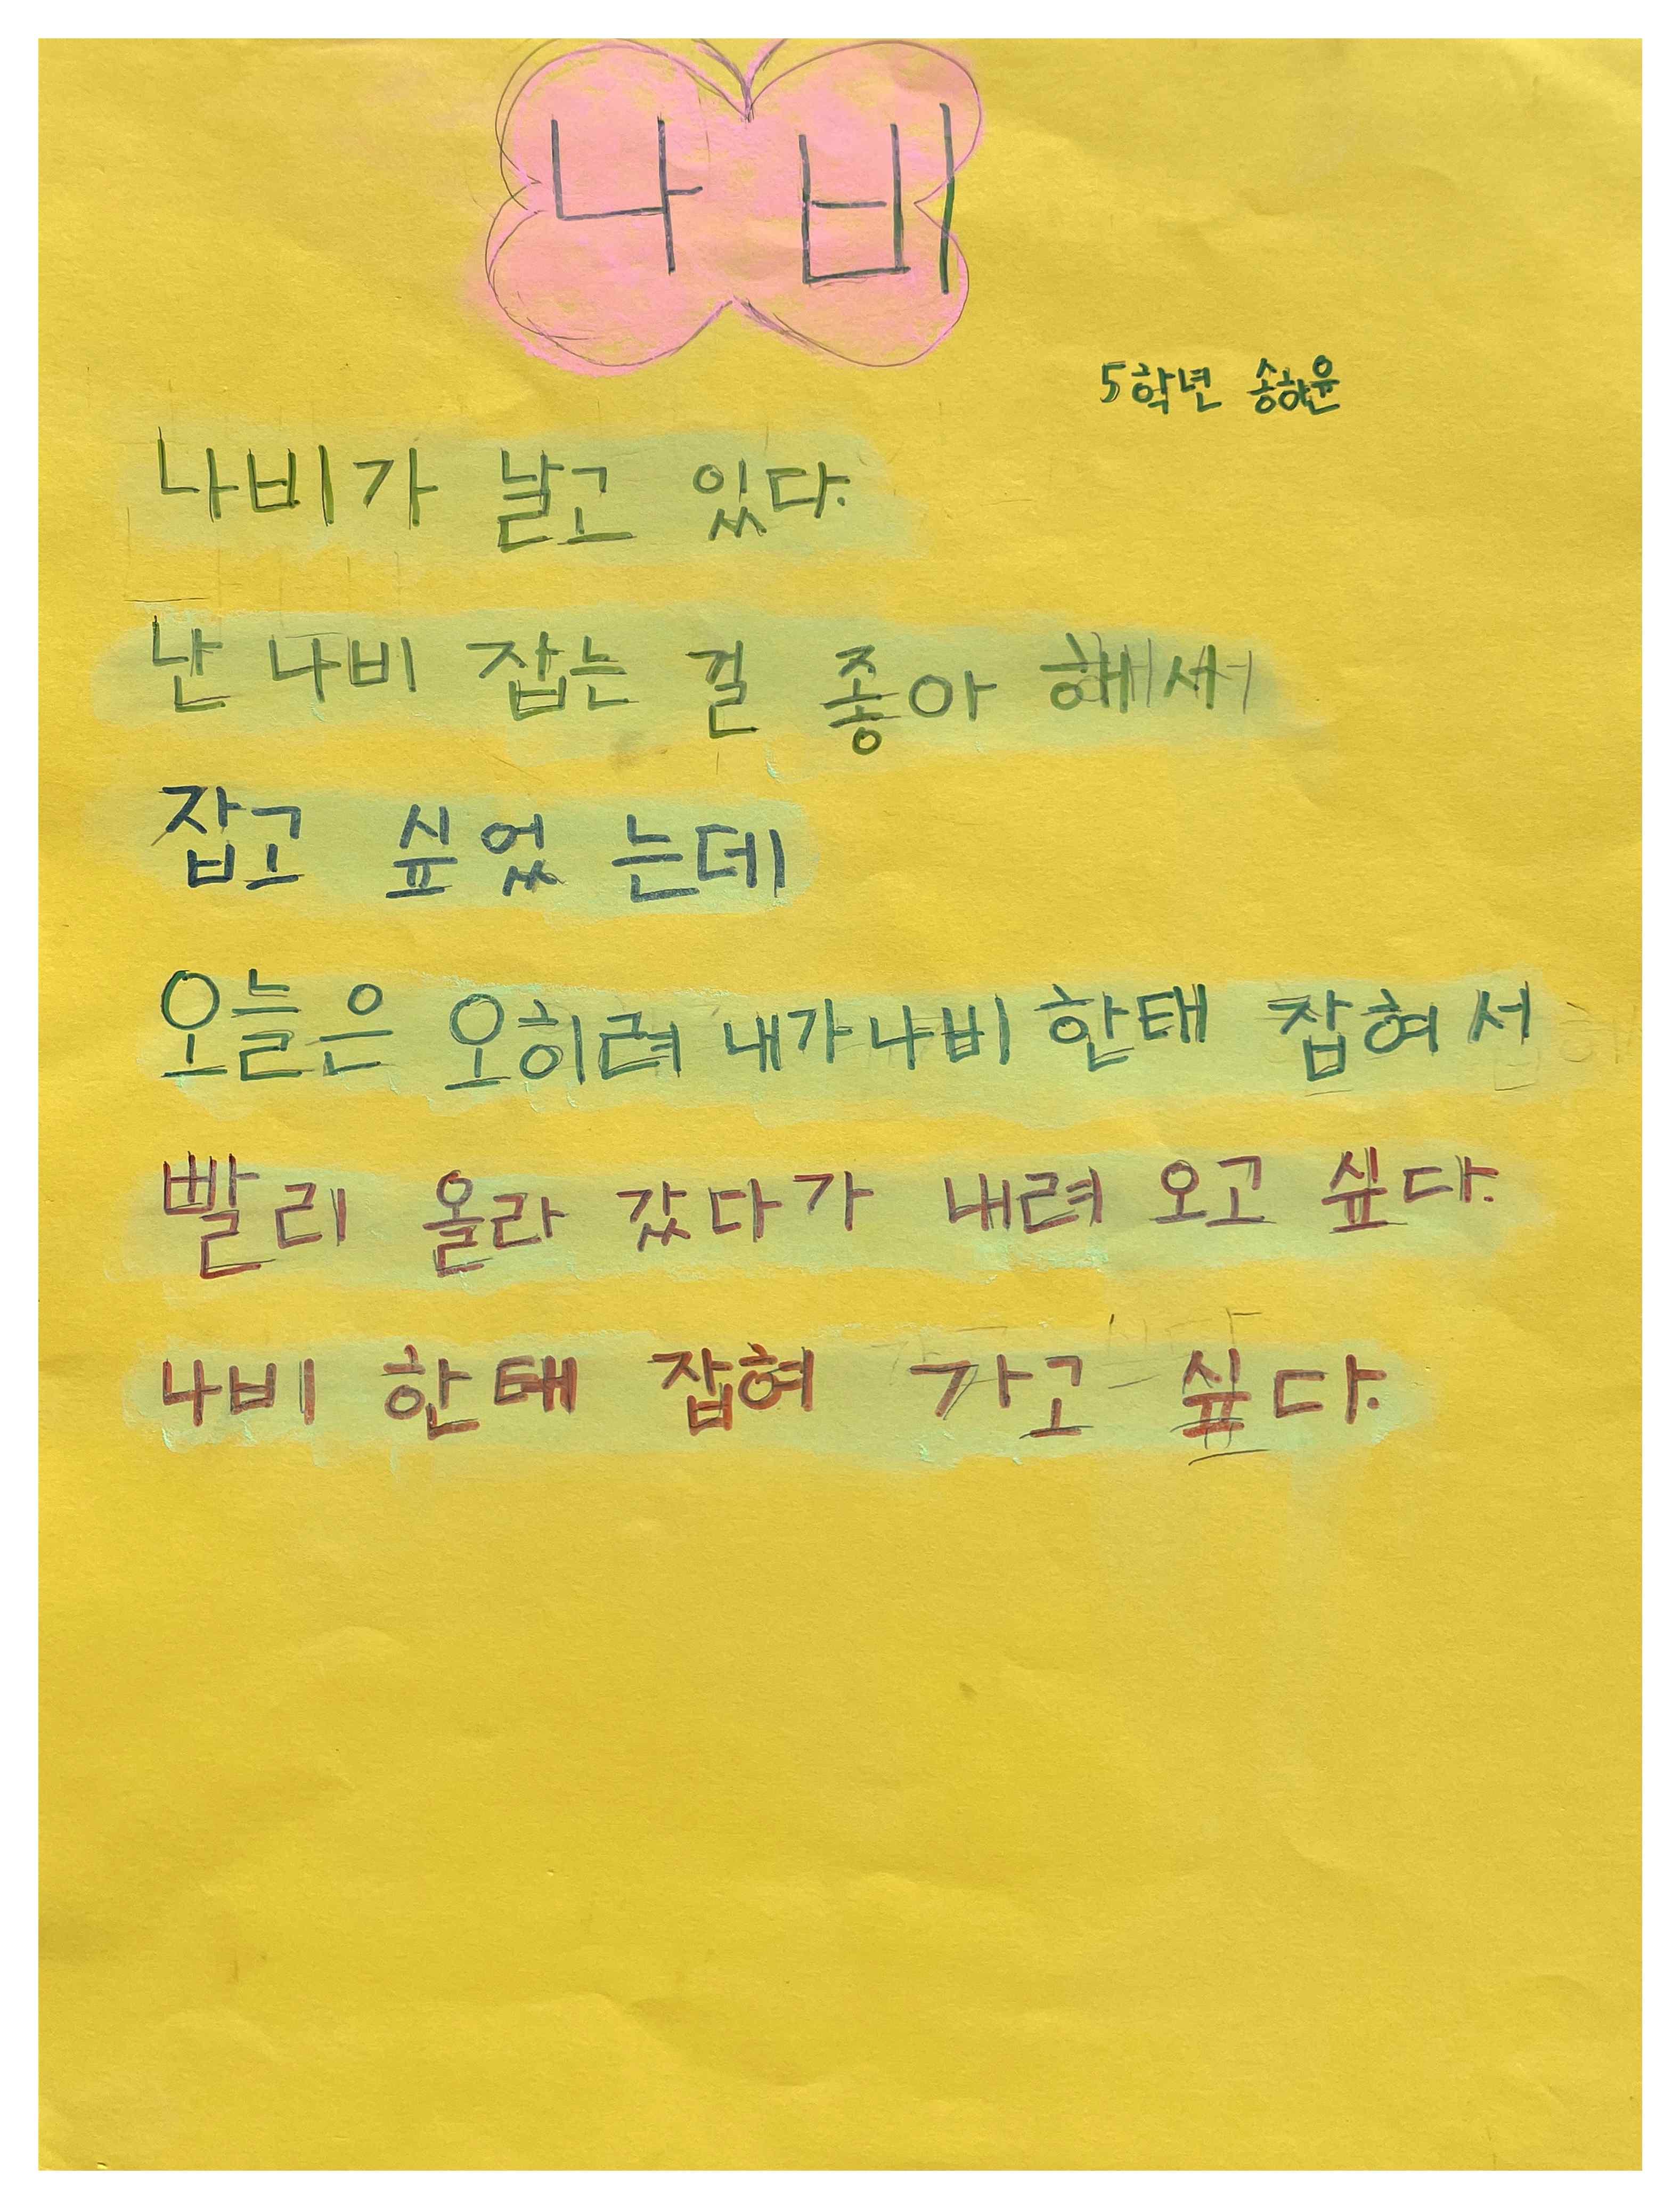 나비
5학년 송하윤
나비가 날고 있다.
난 나비 잡는 걸 좋아 해서
잡고 싶었 는데
오늘은 오히려 내가 나비 한태 잡혀서
빨리 올라 갔다가 내려 오고 싶다.
나비 한태 잡혀 가고 싶다.